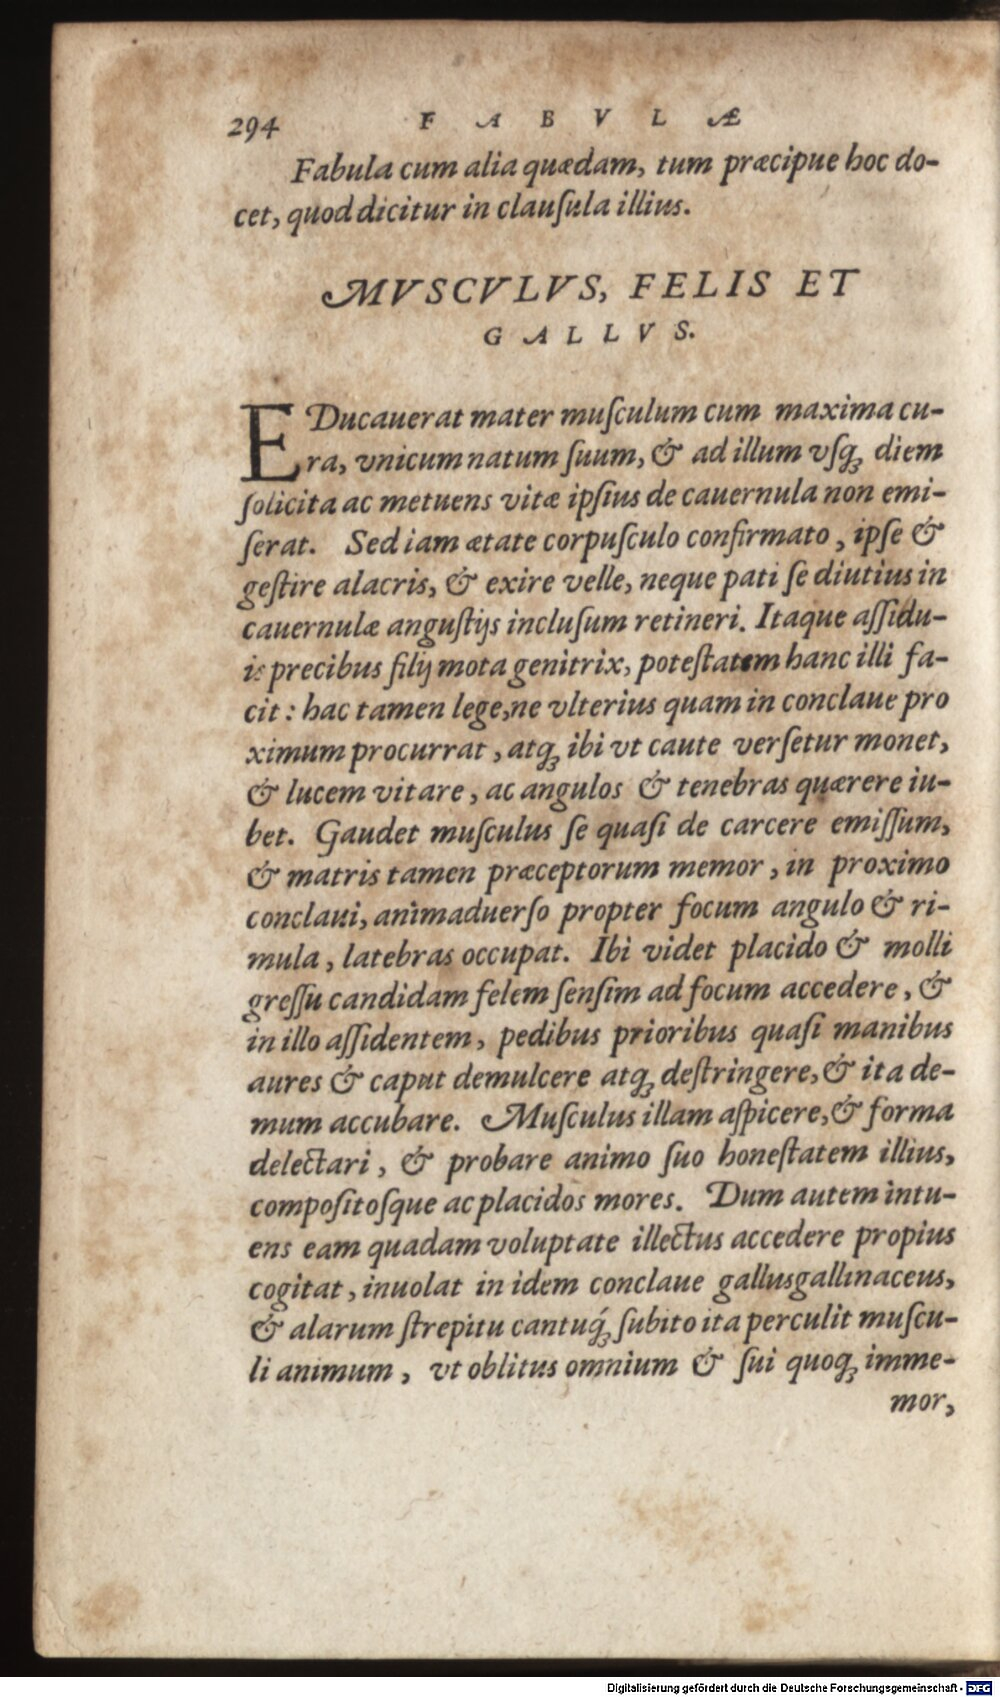 294 FABVLÆ
Fabula cum alia quædam, tum præcipue hoc do-
cet, quod dicitur in clauſula illius.
MVSCVLVS, FELIS ET
GALLVS.
EDucauerat mater muſculum cum maxima cu-
ra, vnicum natum ſuum, & ad illum vſq; diem
ſolicita ac metuens vitæ ipſius de cauernula non emi-
ſerat. Sed iam ætate corpuſculo confirmato, ipſe &
geſtire alacris, & exire velle, neque pati ſe diutius in
cauernulæ anguſtijs incluſum retineri. Itaque aſſidu-
is precibus filij mota genitrix, poteſtatem hanc illi fa-
cit: hac tamen lege, ne vlterius quam in conclaue pro
ximum procurrat, atq; ibi vt caute verſetur monet,
& lucem vitare, ac angulos & tenebras quærere iu-
bet. Gaudet muſculus ſe quaſi de carcere emiſſum,
& matris tamen præceptorum memor, in proximo
conclaui, animaduerſo propter focum angulo & ri-
mula, latebras occupat. Ibi videt placido & molli
greſſu candidam felem ſenſim ad focum accedere, &
in illo aſſidentem, pedibus prioribus quaſi manibus
aures & caput demulcere atq; deſtringere, & ita de-
mum accubare. Muſculus illam aſpicere, & forma
delectari, & probare animo ſuo honeſtatem illius,
compoſitoſque ac placidos mores. Dum autem intu-
ens eam quadam voluptate illectus accedere propius
cogitat, inuolat in idem conclaue gallusgallinaceus,
& alarum ſtrepitu cantuq́; ſubito ita perculit muſcu-
li animum, vt oblitus omnium & ſui quoq; imme-
mor,
Digitalisierung gefördert durch die Deutsche Forschungsgemeinschaft - DFG